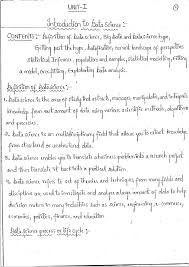 UNIT-I
①
Introduction to Data Science :-
CONTENTS : Definition of data science, Big data and Data science hype,
Getting past the hype, Datafication, current landscape of perspectives
Statistical Inference, populations and samples, statistical modelling, fitting
a model, over fitting, Exploratory Data analysis.
Definition of Data Science :-
Data science is the area of study that extracts, manages, manipulate, and interprets
knowledge from vast amount of data using various scientific methods, algorithms
and processes.
Data science is an multidisciplinary field that allows you to extract knowledge
from structured or unstructured data.
Data science enables you to translate a business problem into a research project
and then translate it back into a practical solution.
Data science refers to set of theories and techniques from many fields and
disciplines are used to investigate and analyse a large amount of data to help
decision makers in many industries such as science, engineering, economics,
politics, finance, and education
Data Science process or life cycle :-